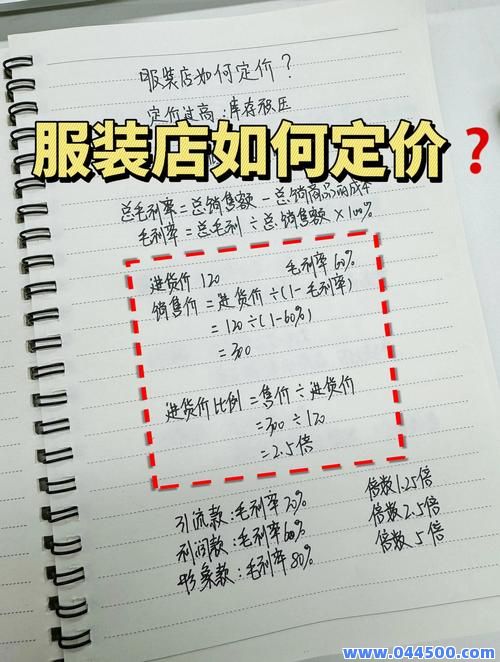 服装店如何定价?
定价过高:库存积压
服装店如何定价?
总毛利率=总销售额-总销商品的成本
毛利率=总毛利÷总销售额×100%
进货价 120 毛利率 60%
销售价=进货价÷(1-毛利率)
=120÷(1-60%)
=300
进货价比例=售价÷进货价
=300÷120
=2.5倍
引流款:毛利率20% 倍数1.25倍
利润款:毛利率60% 倍数2.5倍
形象款:毛利率80% 倍数5倍
www.044500.com